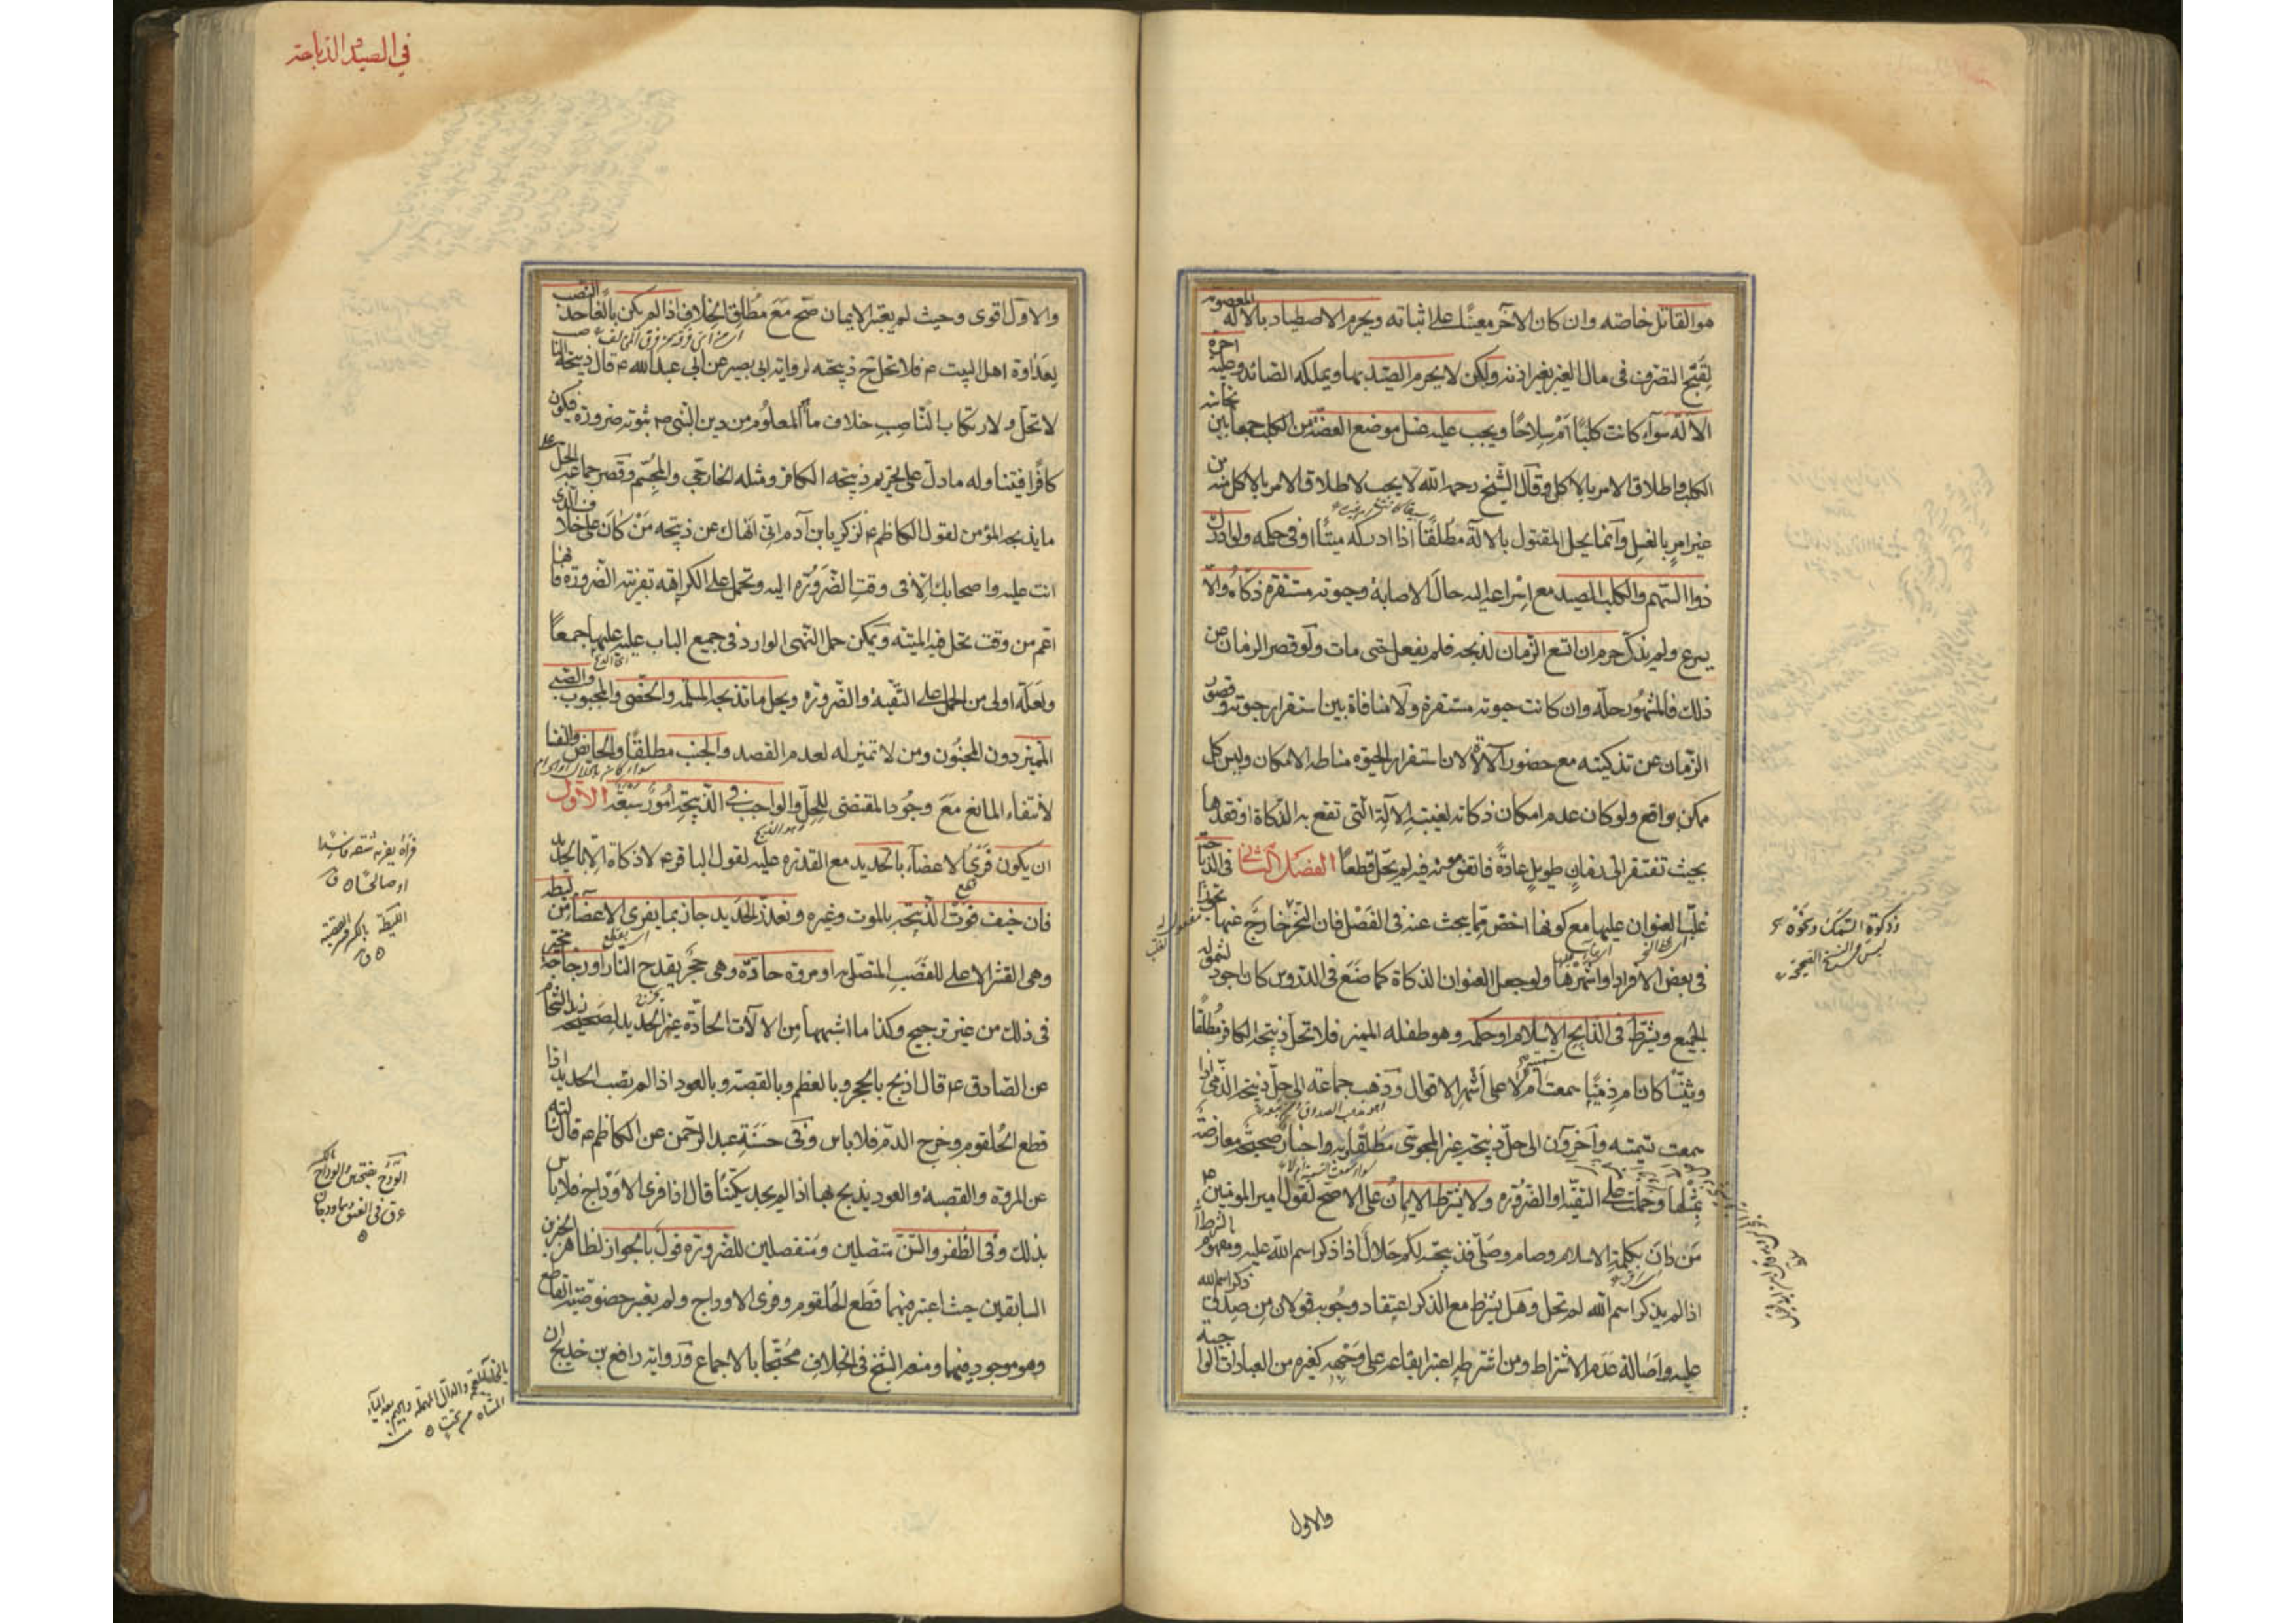 هو القاتل خاصته وان كان الآخر معينًا على اثباته ويحرم الاصطياد بالآلة المغصوبه
لقبح التصرف فى مال الغير بغير اذنه ولكن لا يحرم الصيد بها ويملكه الصائد وعليه اجرة
الآلة سوآء كانت كلبًا ام سلاحًا ويجب عليه غسل موضع العضّة من الكلب جمعا بين نجاسة
الكلب واطلاق الامر بالاكل وقال الشيخ رحمه الله لا يجب لاطلاق الامر بالاكل منه من
غير امر بالغسل وانما يحل المقتول بالآلة مطلقًا اذا ادركه ميتًا او فى حكمه ولو ادرك
ذو السهم والكلب الصيد مع اسراعه اليه حال الاصابة وحيوته مستقرة ذكاه والا
يسرع ولم يذكه حرم ان اتسع الزمان لذبحه فلم يفعل حتى مات ولو قصر الزمان عن
ذلك فالمشهور حله وان كانت حيوته مستقرة ولا منافاة بين استقرار حيوته وقصور
الزمان عن تذكيته مع حضور الآلة لان استقرار الحيوة مناطه الامكان وليس كل
ممكن بواقع ولو كان عدم امكان ذكاته لغيبة الآلة التى تقع بها الذكاة او فقدها
بحيث تفتقر الى زمان طويل عادة فاتفق موته فيه لم يحل قطعا الفصل الثانى فى الذباحة
غلب العنوان عليها مع كونها اخص مما يبحث عنه فى الفصل فان النحر خارج عنها تجوزا
فى بعض الافراد او اشهرها ولو جعل العنوان الذكاة كما صنع فى الدروس كان اجود لشموله
الجميع ويشترط فى الذابح الاسلام او حكمه وهو طفله المميز فلا تحل ذبيحة الكافر مطلقًا
وثنيًا كان ام ذميًا سمعت تسميته ام لا على اشهر الاقوال وذهب جماعة الى حل ذبيحة الذمى اذا
سمعت تسميته وآخرون الى حل ذبيحة غير المجوسى مطلقا وبه اخبار صحيحة معارضة
بمثلها وحملت على التقية او الضرورة ولا يشترط الايمان على الاصح لقول امير المومنين ع
من دان بكلمة الاسلام وصام وصلى فذبيحته لكم حلال اذا ذكر اسم الله عليه ومفهوم الشرط انه
اذا لم يذكر اسم الله لم تحل وهل يشترط مع الذكر اعتقاد وجوبه قولان من صدق ذكر اسم الله
عليه واصالة عدم الاشتراط ومن اشترطه اعتبر ايقاعه على وجهه كغيره من العبادات الواجبة
وذكوة السمك ونحوه
والاول
فى الصيد والذباحة
والاول اقوى وحيث لم يعتبر الايمان صح مع مطلق الخلاف اذا لم يكن بالغا حد النصب
لعداوة اهل البيت ع فلا تحل ح ذبيحته لرواية ابى بصير عن ابى عبد الله ع قال ذبيحة الناصب
لا تحل ولارتكاب الناصب خلاف ما المعلوم من دين النبى ص ثبوته ضرورة فيكون
كافرًا فيتناوله ما دل على تحريم ذبيحة الكافر ومثله الخارجى والمجسم وقصر جماعة الحل على
ما يذبحه المؤمن لقول الكاظم ع لزكريا بن آدم انى انهاك عن ذبيحة من كان على خلاف الذى
انت عليه واصحابك الا فى وقت الضرورة اليه وتحمل على الكراهة بقرينة الضرورة فانها
اعم من وقت تحل فيه الميتة ويمكن حمل النهى الوارد فى جميع الباب عليه عليها جمعا
ولعله اولى من الحمل على التقية والضرورة ويحل ما تذبحه المسلمة والخصى والمجبوب والصبى
المميز دون المجنون ومن لا تميز له لعدم القصد والجنب مطلقا والحائض والنفساء
لانتفاء المانع مع وجود المقتضى للحل والواجب فى الذبيحة امور سبعة الاول
ان يكون فرى الاعضاء بالحديد مع القدرة عليه لقول الباقر ع لا ذكاة الا بالحديد
فان خيف فوت الذبيحة بالموت وغيره وتعذر الحديد جاز بما يفرى الاعضاء من ليطة
وهى القشر الاعلى للقصب المتصل به او مروة حادة وهى حجر يقدح النار او زجاجة مخير
فى ذلك من غير ترجيح وكذا ما اشبهها من الالآت الحادة غير الحديد لصحيحة زيد الشحام
عن الصادق ع قال اذبح بالحجر وبالعظم وبالقصبة وبالعود اذا لم تصب الحديد اذا
قطع الحلقوم وخرج الدم فلا باس وفى حسنة عبد الرحمن عن الكاظم ع قال سالته
عن المروة والقصبة والعود يذبح بها اذا لم يجد سكينًا قال اذا فرى الاوداج فلا باس
بذلك وفى الظفر والسن متصلين ومنفصلين للضرورة قول بالجواز لظاهر الخبرين
السابقين حيث اعتبر فيهما قطع الحلقوم وفرى الاوداج ولم يعتبر خصوصية القاطع
وهو موجود فيهما ومنعه الشيخ فى الخلاف محتجا بالاجماع ورواية رافع بن خديج ان
فراه يفريه شقه فاسدا
او صالحًا ق
الليطة بالكسر قشر القصبة
ق